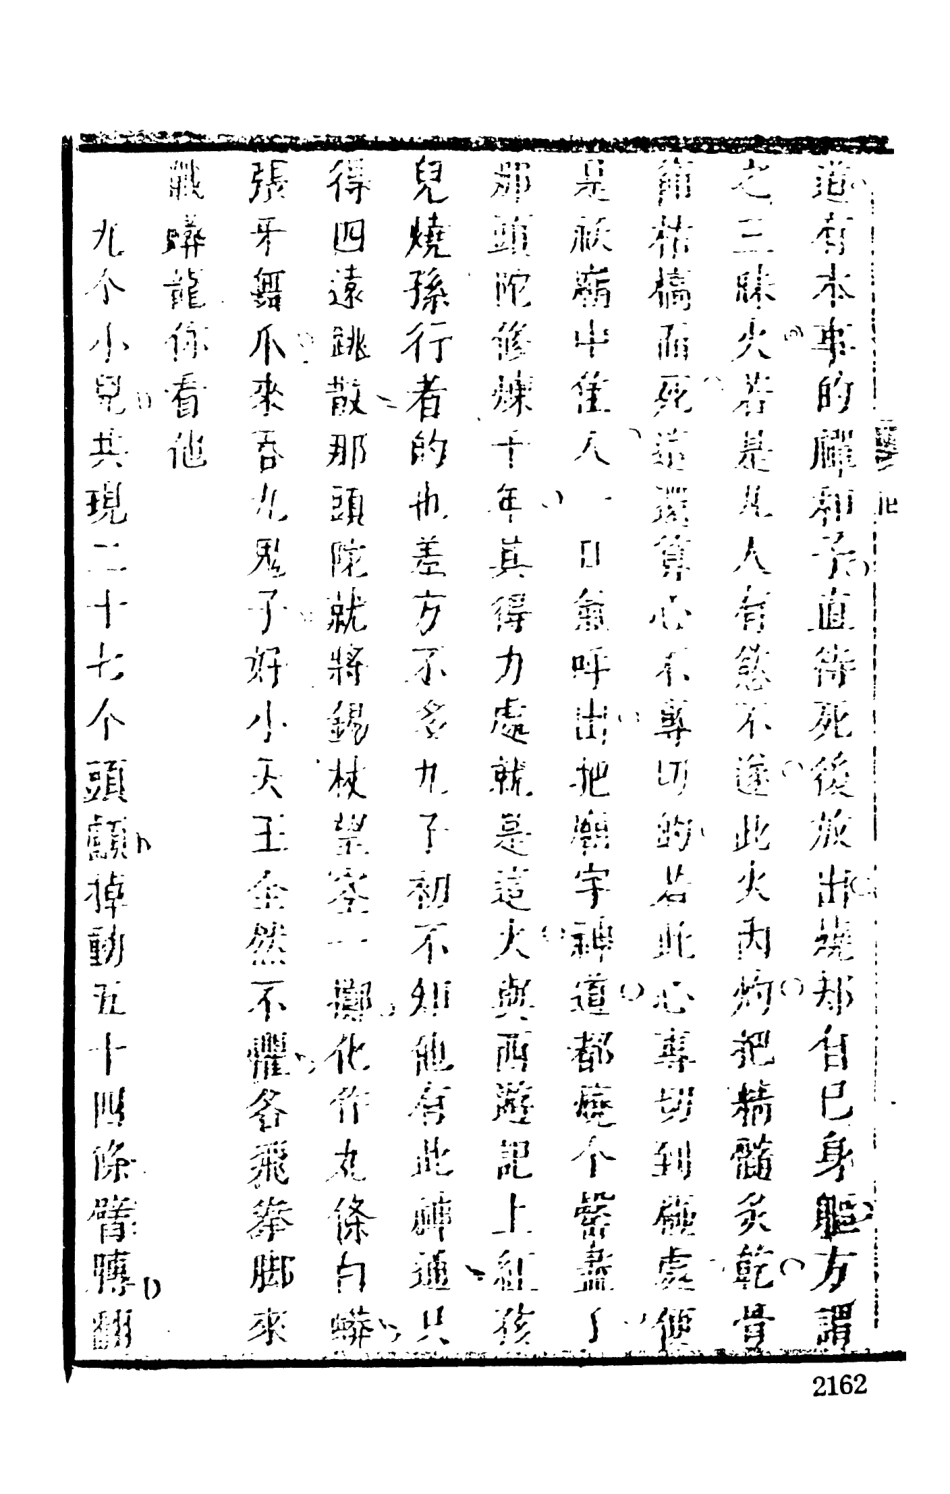 道有本事的禪和子直待死後放出燒却自已身軀方謂
之三昧火若是凡人有慾不遂此火内灼把精髓炙乾骨
枯槁而死這還算心不專切的若此心專切到極處便
是祅廟中隹人一口氣呼出把廟宇神道都燒个罄盡了
那頭陀修煉千年真得力處就是這火與西遊記上紅孩
兒燒孫行者的也差方不多九子初不知他有此神通只
得四遠跳散那頭陀就將錫杖望空一擲化作九條白蟒
張牙舞爪來吞九鬼子好小天王全然不懼各飛拳脚來
戰蟒龍你看他
九个小兒共現二十七个頭顱掉動五十四條臂膊翻
2162